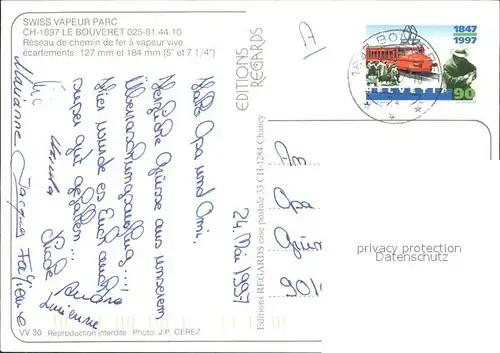 SWISS VAPEUR PARC
CH-1897 LE BOUVERET 025-81.44.10
Réseau de chemin de fer à vapeur vive
écartements: 127 mm et 184 mm (5" et 7 1/4")
Halli Opa und Omi,
herzliche Grüsse aus unserem
Überraschungsausflug...!
Hier würde es Euch auch
super gut gefallen...
24. Mai 1997
Marianne Jacques Fabienne
Ursula
Andrea
VV 30 Reproduction interdite Photo: J.P. CEREZ
EDITIONS
REGARDS
Editions REGARDS case postale 33 CH-1284 Chancy
A
1847
1997
HELVETIA
90
An
Opa
privacy protection
Datenschutz